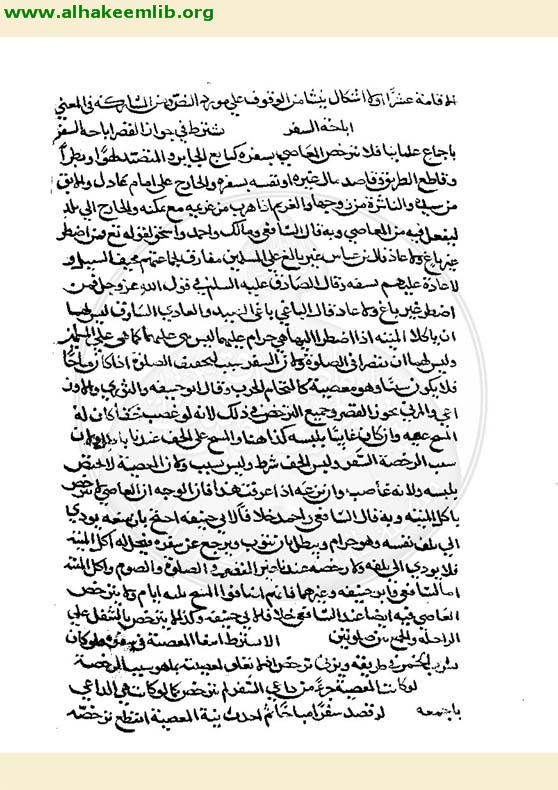 www.alhakeemlib.org
الاقامة عشرا اولا اشكال ينشأ من الوقوف على مورد النص ومن المشاركة في المعنى
اباحة السفر يشترط في جواز القصر اباحة السفر
باجماع علمائنا فلا يترخص العاصي بسفره كتابع الجاير والمتصيد لهوا وبطرا
وقاطع الطريق وقاصد مال غيره او نفسه بسفره والخارج على امام عادل والابق
من سيده والناشزة من زوجها والغريم اذا هرب من غريمه مع تمكنه والخارج الى بلد
ليفعل فيه من المعاصي وبه قال الشافعي ومالك واحمد واسحق لقوله تع فمن اضطر
غير باغ ولا عاد قال ابن عباس غير باغ على المسلمين مفارق لجماعتهم مخيف السبيل و
لا عاد عليهم بسفه وقال الصادق عليه السلم في قول الله عز وجل فمن
اضطر غير باغ ولا عاد قال الباغي باغي الصيد والعادي السارق ليس لهما
ان ياكلا الميتة اذا اضطرا اليها هي حرام عليهما ليس هي عليهما كما هي على المسلمين
وليس لهما ان يقصرا في الصلوة ولان السفر سبب لتخفيف الصلوة اذا كان مباحا
فلا يكون سببا وهو معصية كالتحام الحرب وقال ابو حنيفة والثوري والاوزا
اعي والمزني يجوز القصر وجميع الترخص في ذلك لانه لو غصب خفا كان له
المسح عليه وان كان عاصيا بلبسه كذا هنا والمسح على الخف عندنا باطل ولان
سبب الرخصة السفر وليس الخف شرط وليس بسبب ولان المعصية لا تختص
بلبسه ولانه غاصب وان نزعه اذا عرفت هذا فان الوجه ان العاصي لا يترخص
باكل الميتة وبه قال الشافعي واحمد خلافا لابي حنيفة احتج بان منعه يودي
الى تلف نفسه وهو حرام ويبطل بان يتوب ويرجع عن سفره فيحل له اكل الميتة
فلا يودي الى تلفه والرخصة عندنا جبر التقصير في الصلوة والصوم واكل الميتة
اما الشافعي وابو حنيفة وغيرهما فانهم اضافوا المسح ثلثة ايام ولا يترخص
العاصي فيه ايضا عند الشافعي خلافا لابي حنيفة وكذا لا يترخص بالتنفل على
الراحلة والجمع بين صلوتين الا يشترط انتفا المعصية في سفره فلو كان
يشرب الخمر في طريقه ويزني ترخص اذ لا تعلق لمعصيته بما هو سبب الرخصة
لو كانت المعصية جزءا من داعي السفر لم يترخص كما لو كانت هي الداعي
باجمعه لو قصد سفرا مباحا ثم احدث نية المعصية انقطع ترخصه